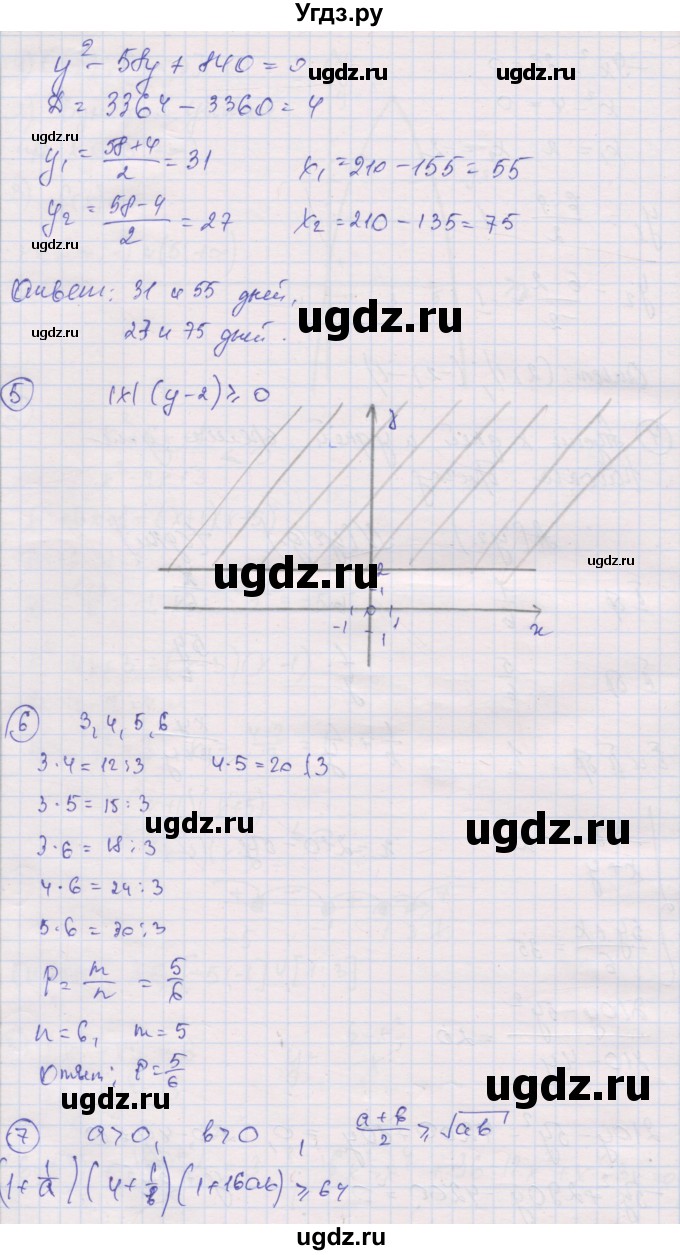 Угдз.ру
y² - 58y + 840 = 0
ugdz.ru
ugdz.ru
D = 3364 - 3360 = 4
ugdz.ru
y₁ = (58+4)/2 = 31 x₁ = 210 - 155 = 55
y₂ = (58-4)/2 = 27 x₂ = 210 - 135 = 75
ugdz.ru
Ответ: 31 и 55 дней,
ugdz.ru
27 и 75 дней.
ugdz.ru
5 |x| (y-2) ≥ 0
y
ugdz.ru
ugdz.ru
2
1
-1 0 1
-1
x
6 3, 4, 5, 6
3·4 = 12⋮3 4·5 = 20 ⋮̸ 3
3·5 = 15⋮3
ugdz.ru
ugdz.ru
3·6 = 18⋮3
4·6 = 24⋮3
5·6 = 30⋮3
P = m/n = 5/6
n = 6, m = 5
Ответ: P = 5/6
ugdz.ru
ugdz.ru
7 a>0, b>0, (a+b)/2 ≥ √ab
(1+1/a)(4+1/b)(1+16ab) ≥ 64
ugdz.ru